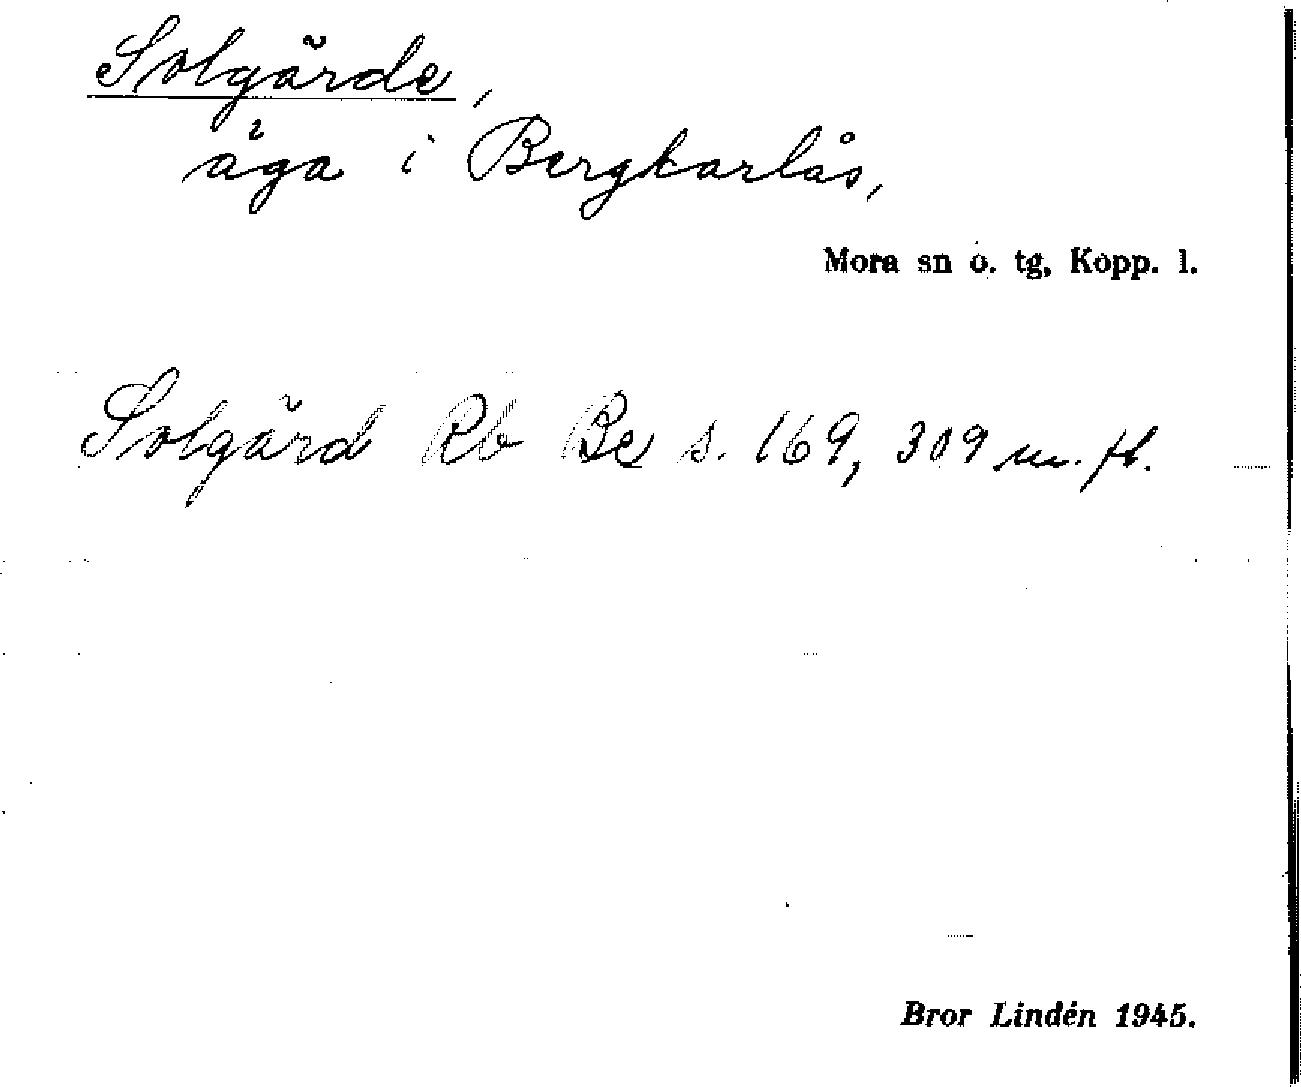 Solgärde,
äga i Bergkarlås,
Mora sn o. tg, Kopp. l.
Solgärd Rb Be s. 169, 309 m. fl.
Bror Lindén 1945.